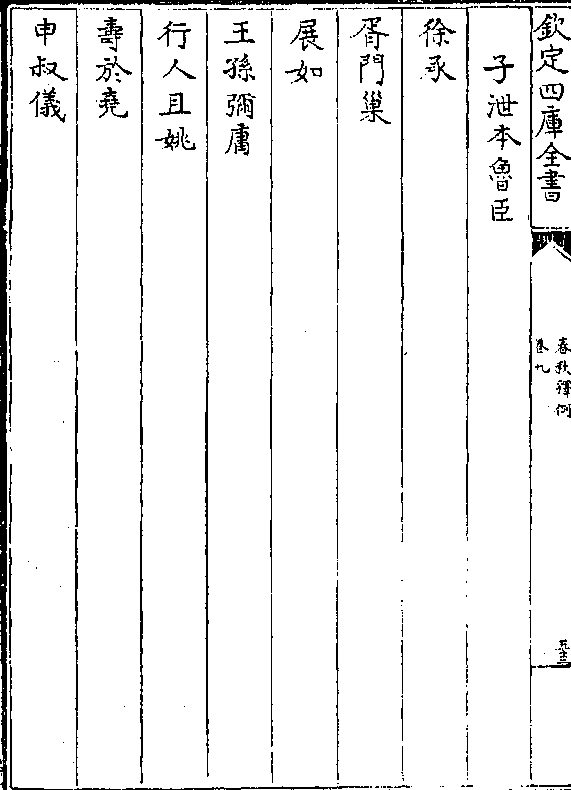 欽定四庫全書
春秋釋例
卷九
子泄本魯臣
徐承
胥門巢
展如
王孫彌庸
行人且姚
壽於堯
申叔儀